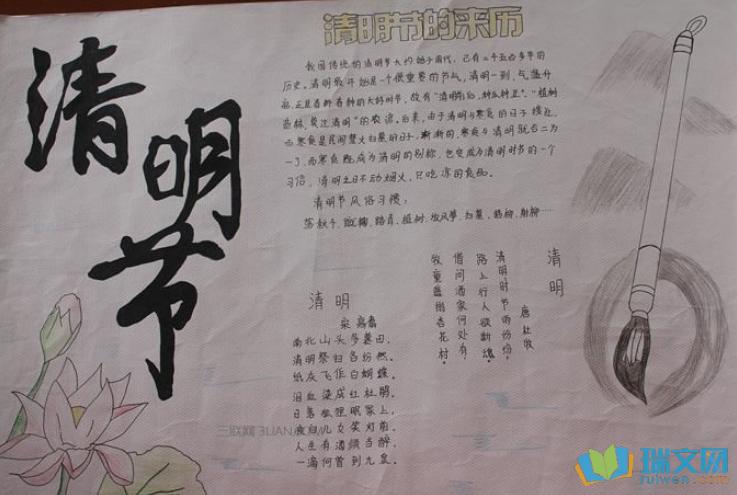 清明节
清明节的来历
我国传统的清明节大约始于周代,已有二千五百多年的
历史。清明最开始是一个很重要的节气,清明一到,气温升
高,正是春耕春种的大好时节,故有“清明前后,种瓜种豆”。“植树
造林,莫过清明”的农谚。后来,由于清明与寒食的日子接近,
而寒食是民间禁火扫墓的日子,渐渐的,寒食与清明就合二为
一了,而寒食既成为清明的别称,也变成为清明时节的一个
习俗,清明之日不动烟火,只吃凉的食品。
清明节风俗习惯:
荡秋千、蹴鞠、踏青、植树、放风筝、扫墓、插柳、射柳……
清明
唐 杜牧
清明时节雨纷纷,
路上行人欲断魂。
借问酒家何处有
牧童遥指杏花村。
清明
宋 高翥
南北山头多墓田,
清明祭扫各纷然。
纸灰飞作白蝴蝶,
泪血染成红杜鹃。
日暮狐狸眠冢上,
夜归儿女笑灯前。
人生有酒须当醉,
一滴何曾到九泉。
三联网 3LIAN
瑞文网
ruiwen.com